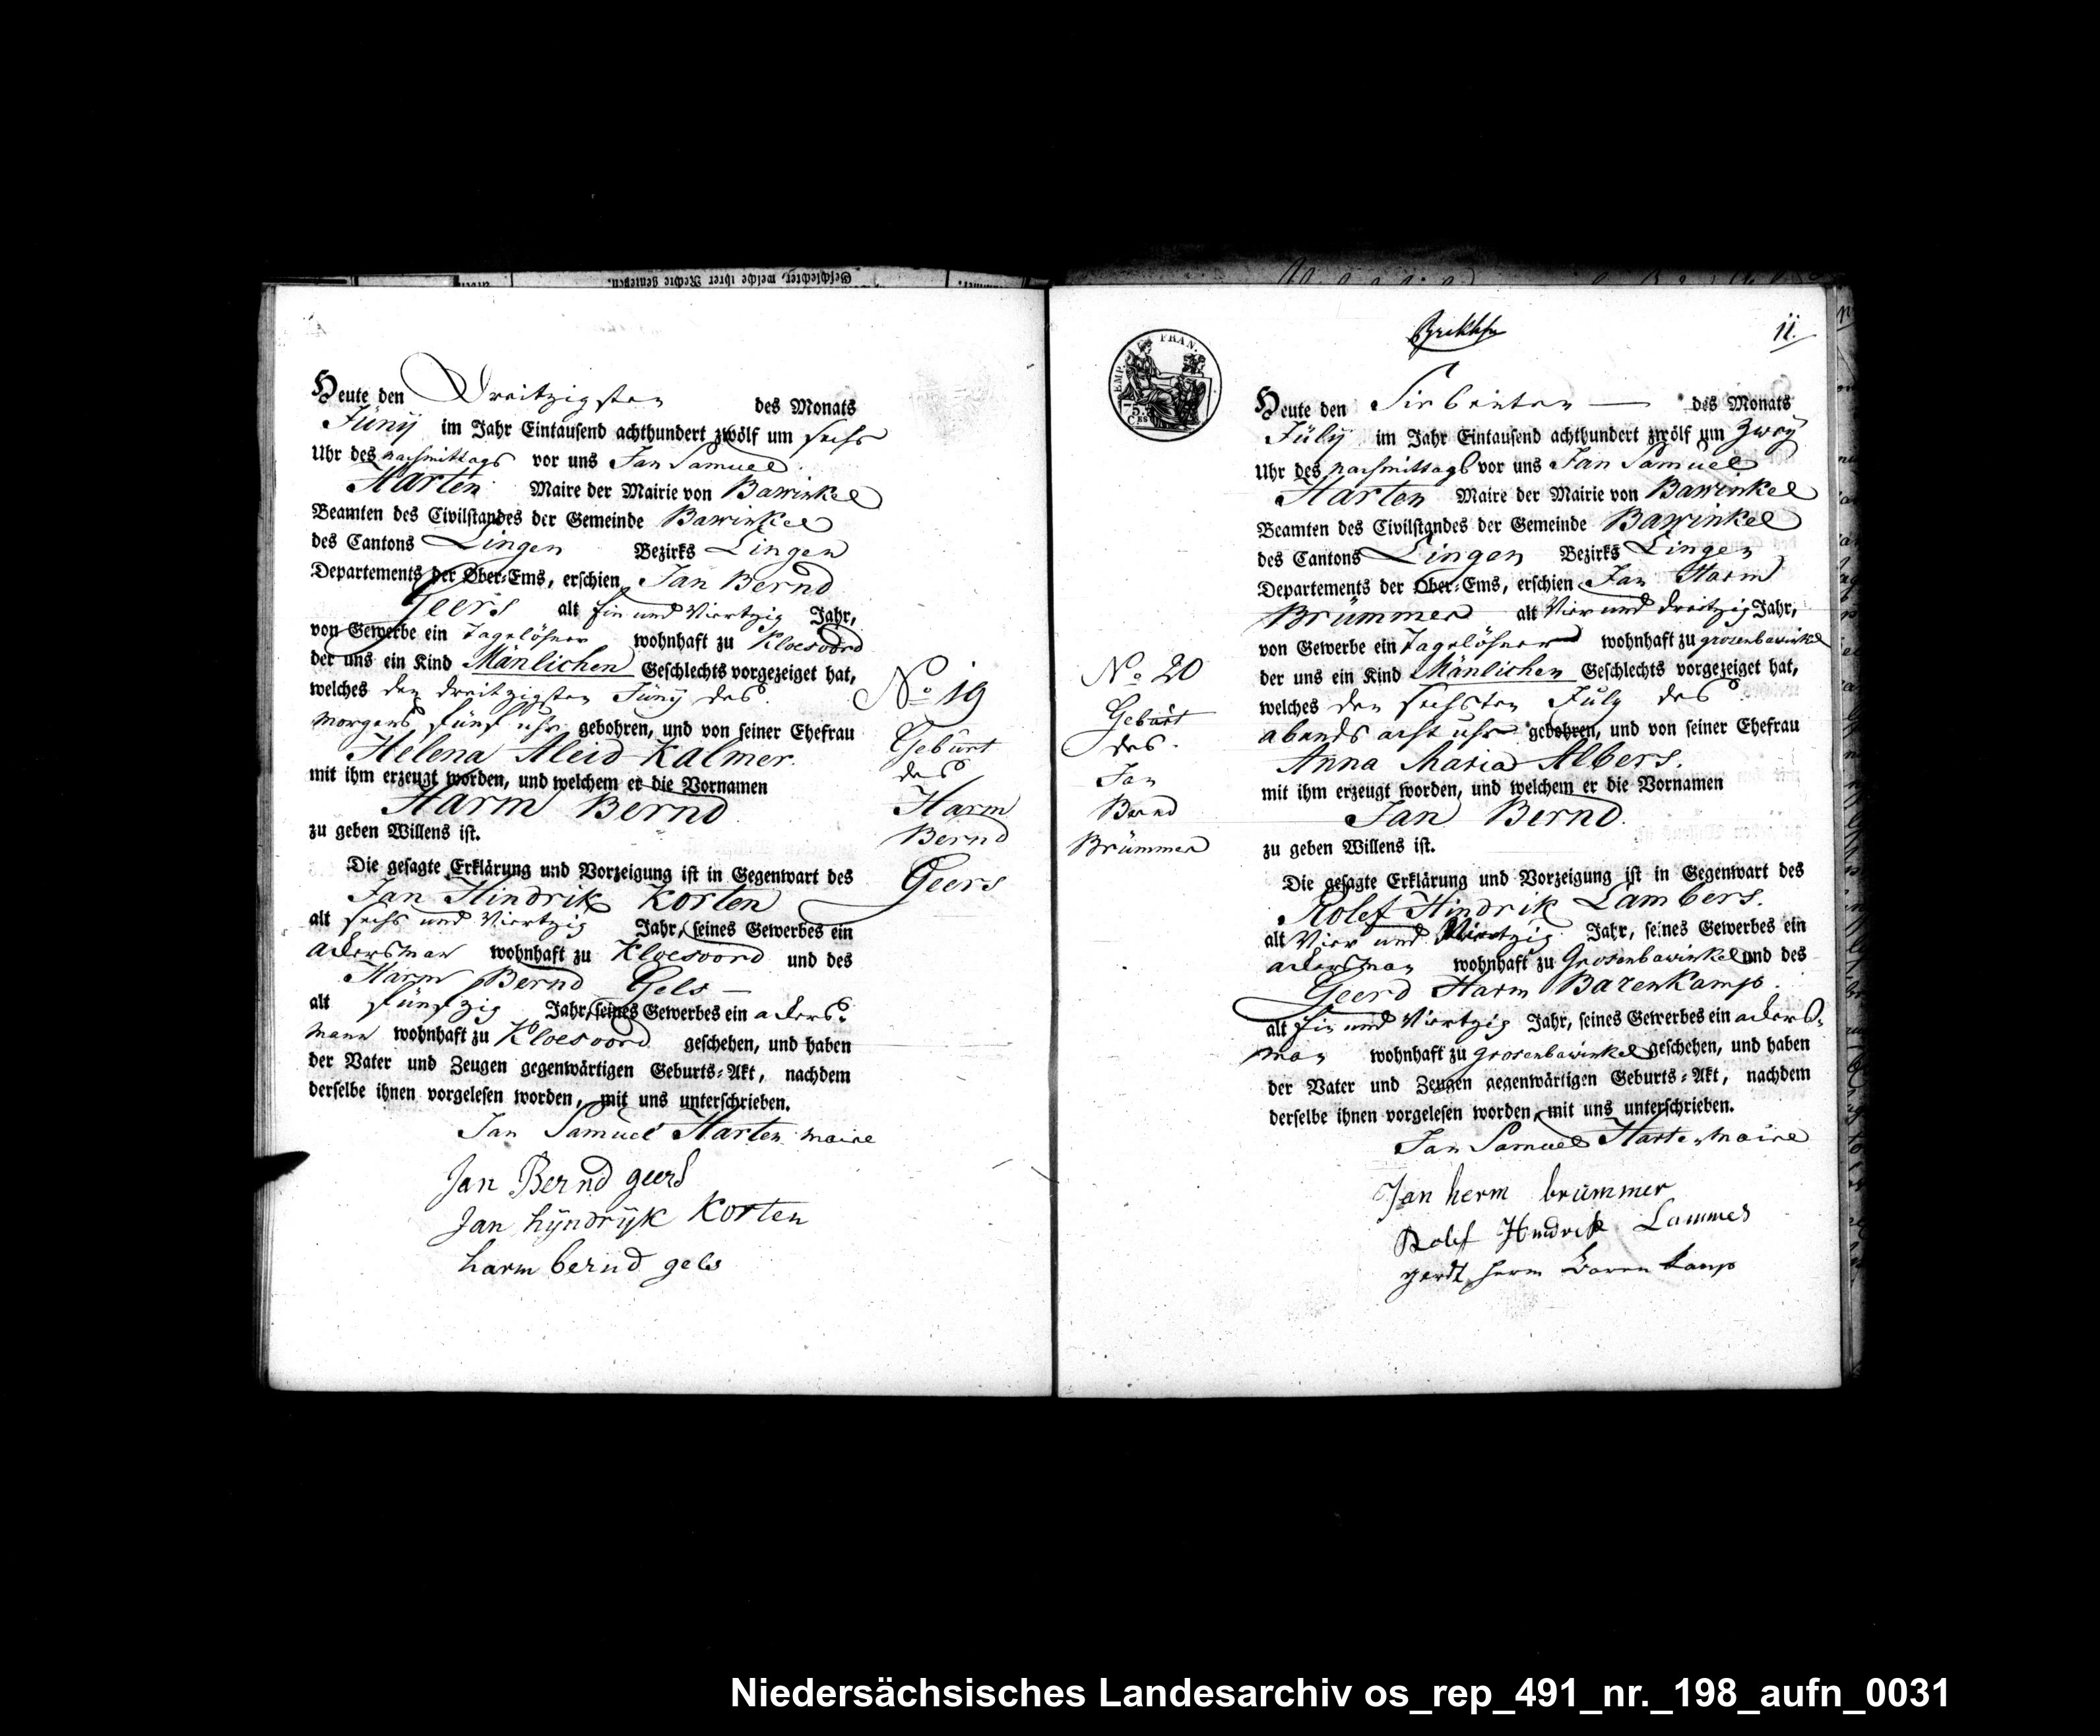 Heute den Dreitzigsten des Monats
Jüny im Jahr Eintausend achthundert zwölf um sechs
Uhr des nachmittags vor uns Jan Samuel
Harten Maire der Mairie von Bawinkel
Beamten des Civilstandes der Gemeinde Bawinkel
des Cantons Lingen Bezirks Lingen
Departements der Ober-Ems, erschien Jan Bernd
Geers alt ein und Viertzig Jahr,
von Gewerbe ein Tagelöhner wohnhaft zu Kloesoord
der uns ein Kind Mänlichen Geschlechts vorgezeiget hat,
welches den dreitzigsten Jüny des
morgens fünf uhr gebohren, und von seiner Ehefrau
Helena Aleid Kalmer.
mit ihm erzeugt worden, und welchem er die Vornamen
Harm Bernd
zu geben Willens ist.
Die gesagte Erklärung und Vorzeigung ist in Gegenwart des
Jan Hindrik Korten
alt sechs und Viertzig Jahr, seines Gewerbes ein
ackersman wohnhaft zu Kloesoord und des
Harm Bernd Gels —
alt fünfzig Jahr, seines Gewerbes ein ackers-
mann wohnhaft zu Kloesoord geschehen, und haben
der Vater und Zeugen gegenwärtigen Geburts-Akt, nachdem
derselbe ihnen vorgelesen worden, mit uns unterschrieben.
Jan Samuel Harten maire
Jan Bernd geers
Jan hÿndrÿk Korten
harm bernd gels
No 19
Gebürt
des
Harm
Bernd
Geers
EMP. FRAN.
75.
Ces
11.
No 20
Gebürt
des.
Jan
Bernd
Brümmer
Heute den Siebenten — des Monats
Jülÿ im Jahr Eintausend achthundert zwölf um zweÿ
Uhr des nachmittags vor uns Jan Samüel
Harten Maire der Mairie von Bawinkel
Beamten des Civilstandes der Gemeinde Bawinkel
des Cantons Lingen Bezirks Lingen
Departements der Ober-Ems, erschien Jan Harm
Brümmer alt Vier und dreitzig Jahr,
von Gewerbe ein Tagelöhner wohnhaft zu grosenbawinkel
der uns ein Kind Mänlichen Geschlechts vorgezeiget hat,
welches den sechsten Jüly des
abends acht uhr gebohren, und von seiner Ehefrau
Anna Maria Albers.
mit ihm erzeugt worden, und welchem er die Vornamen
Jan Bernd.
zu geben Willens ist.
Die gesagte Erklärung und Vorzeigung ist in Gegenwart des
Rolef Hindrik Lambers.
alt Vier und Viertzig Jahr, seines Gewerbes ein
ackersman wohnhaft zu Grosenbawinkel und des
Geerd Harm Barenkamp.
alt ein und Viertzig Jahr, seines Gewerbes ein ackers-
man wohnhaft zu grosenbawinkel geschehen, und haben
der Vater und Zeugen gegenwärtigen Geburts-Akt, nachdem
derselbe ihnen vorgelesen worden, mit uns unterschrieben.
Jan Samuel Harten maire
Jan herm brümmer
Rolef Hndrik Lammes
gerdt herm baren kamp
Niedersächsisches Landesarchiv os_rep_491_nr._198_aufn_0031